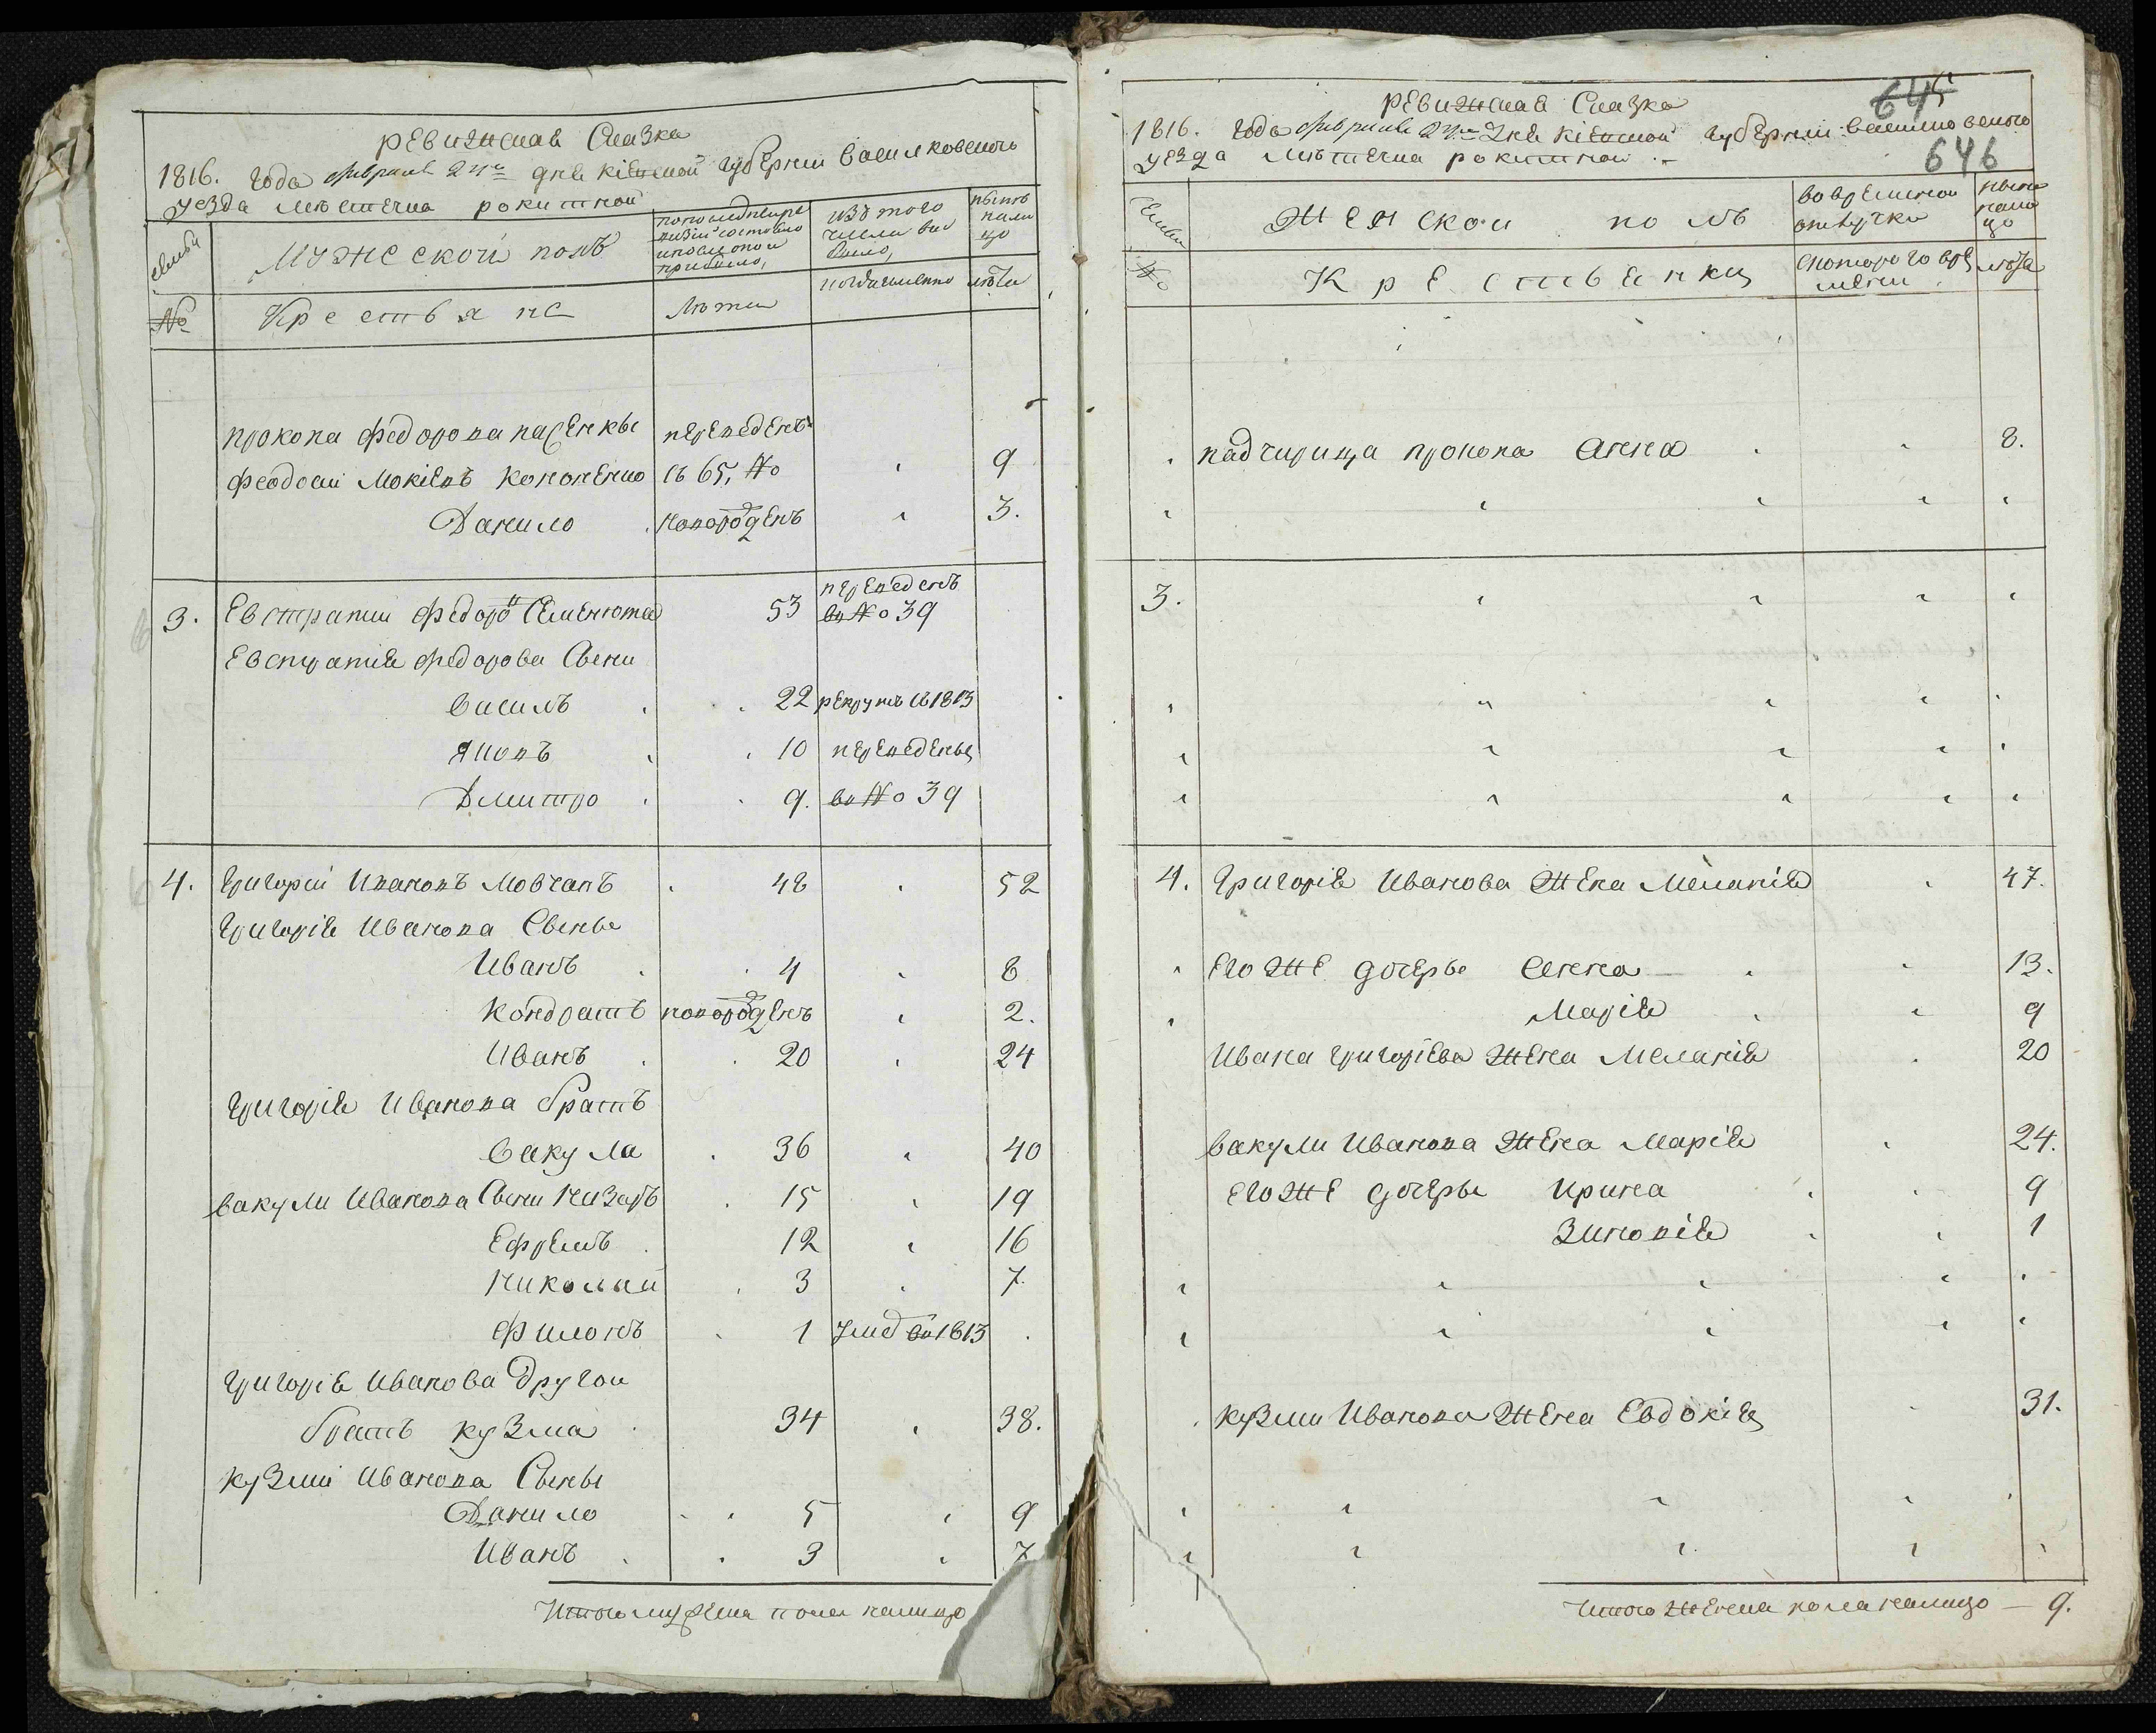 Ревижская Сказка
1816. года февраля 24го дня кіевской губерніи василковского
уезда местечка рокитной
семьи
Мужеской полъ
попоследней ре
визіи состояло
ипосле оной
прибыло,
изъ того
числа вы
было,
ныне
нали
цо
№
Крестьяне
Лета
когда именно
лета
прокопа федорова пасенки переведенъ
феодосій Мокіевъ Кононенко съ 65, № 9
Данило новорожденъ 3.
3. Евстратий федоровъ Семенюта 53 переведенъ
въ № 39
Евстратія федорова Сыни
Василь 22 рекрутъ въ 1813
Яковъ 10 переведены
Дмитро 9. въ № 39
4. Григорій Ивановъ Мовчанъ 48 52
Григорія Иванова Сыны
Иванъ 4 8
Кондратъ новорожденъ 2.
Иванъ 20 24
Григорія Иванова братъ
Вакула 36 40
вакули Иванова Сыни Назаръ 15 19
Ефремъ 12 16
Николай 3 7.
Филонъ 1 умеръ въ 1813
Григорія Иванова другой
братъ кузма 34 38.
кузми Иванова Сыны
Данило 5 9
Иванъ 3 7
Итого мужеска пола налицо
645
Ревижская Сказка
1816. года февраля 24го дня кіевской губерніи василковского
уезда местечка рокитной
646
Семьи
Женской полъ
вовременной
отлучки
ныне
нали
цо
№
Крестьянки
скоторого вре
мени
лета
падчирица прокопа Анна 8.
3.
4. Григорія Иванова жена Меланія 47.
Его же дочерье Анна 13.
Марія 9
Ивана григоріева жена Меланія 20
вакули Иванова жена Марія 24.
Его же дочеры Ирина 9
Зиновія 1
кузми Иванова жена Евдокія 31.
Итого женска пола налицо — 9.